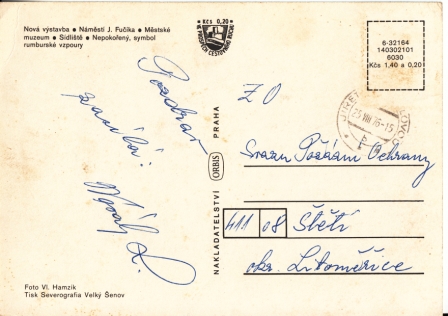 Nová výstavba • Náměstí J. Fučíka • Městské
muzeum • Sídliště • Nepokořený, symbol
rumburské vzpoury
• Kčs 0,20 •
6-32164
140302101
6030
Kčs 1,40 a 0,20
25.VIII.76-15
Pozdrav
zasílá
ZO
Svazu Požární Ochrany
411 08 Štětí
okr. Litoměřice
NAKLADATELSTVÍ ORBIS PRAHA
Foto Vl. Hamzík
Tisk Severografia Velký Šenov